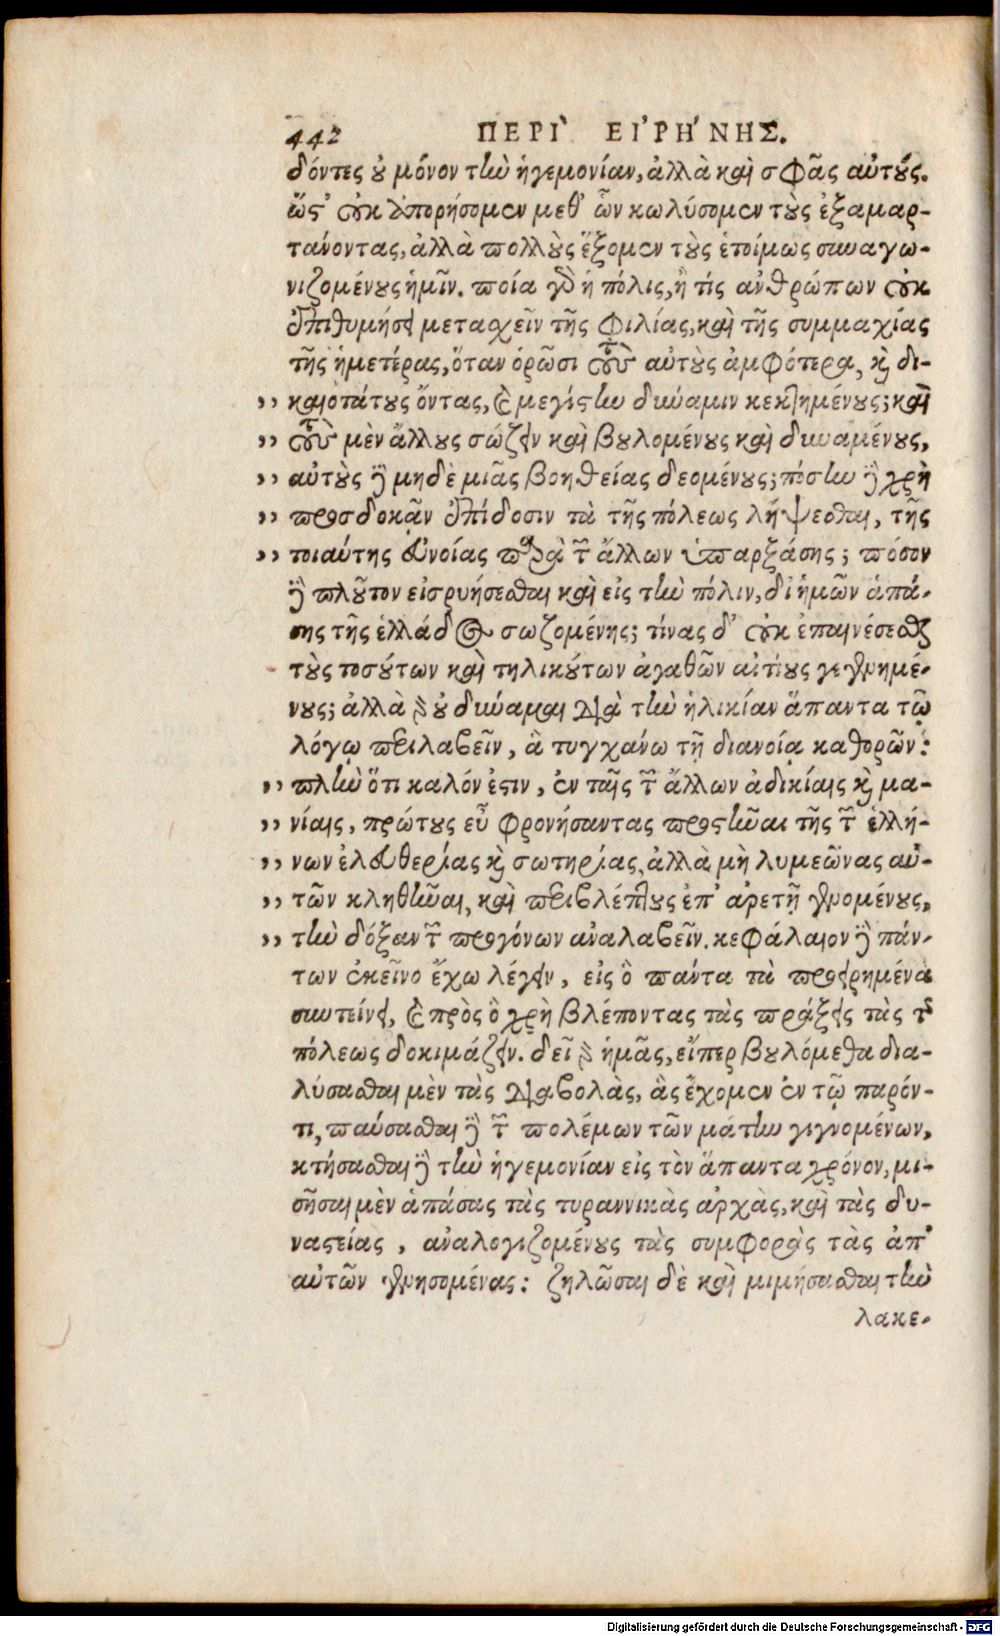 442 ΠΕΡΙ` ΕΙ᾿ΡΗ´ΝΗΣ.
δόντες οὐ μόνον τὴν ἡγεμονίαν, ἀλλὰ καὶ σφᾶς αὐτούς.
ὥς᾿ οὐκ ἀπορήσομεν μεθ᾿ ὧν κωλύσομεν τοὺς ἐξαμαρ-
τάνοντας, ἀλλὰ πολλοὺς ἕξομεν τοὺς ἑτοίμως συναγω-
νιζομένους ἡμῖν. ποία γὰρ ἡ πόλις, ἢ τίς ἀνθρώπων οὐκ
ἐπιθυμήσει μετασχεῖν τῆς φιλίας, καὶ τῆς συμμαχίας
τῆς ἡμετέρας, ὅταν ὁρῶσι τοὺς αὐτοὺς ἀμφότερα, καὶ δι-
,, καιοτάτους ὄντας, καὶ μεγίστην δύναμιν κεκτημένους; καὶ
,, τοὺς μὲν ἄλλους σώζειν καὶ βουλομένους καὶ δυναμένους,
,, αὐτοὺς δὲ μηδὲ μιᾶς βοηθείας δεομένους; πόστην δὲ χρὴ
,, προσδοκᾶν ἐπίδοσιν τὰ τῆς πόλεως λήψεσθαι, τῆς
,, τοιαύτης εὐνοίας παρὰ τῶν ἄλλων ὑπαρξάσης; πόσον
δὲ πλοῦτον εἰσρυήσεσθαι καὶ εἰς τὴν πόλιν, δι᾿ ἡμῶν ἁπά-
σης τῆς ἑλλάδος σωζομένης; τίνας δ᾿ οὐκ ἐπαινέσεσθαι
τοὺς τοσούτων καὶ τηλικούτων ἀγαθῶν αἰτίους γεγενημέ-
νους; ἀλλὰ γὰρ οὐ δύναμαι διὰ τὴν ἡλικίαν ἅπαντα τῷ
λόγῳ περιλαβεῖν, ἃ τυγχάνω τῇ διανοίᾳ καθορῶν:
,, πλὴν ὅτι καλόν ἐστιν, ἐν ταῖς τῶν ἄλλων ἀδικίαις καὶ μα-
,, νίαις, πρώτους εὖ φρονήσαντας προστῆναι τῆς τῶν ἑλλή-
,, νων ἐλευθερίας καὶ σωτηρίας, ἀλλὰ μὴ λυμεῶνας αὐ-
,, τῶν κληθῆναι, καὶ περιβλέπτους ἐπ᾿ ἀρετῇ γενομένους,
,, τὴν δόξαν τῶν προγόνων ἀναλαβεῖν. κεφάλαιον δὲ πάν-
των ἐκεῖνο ἔχω λέγειν, εἰς ὃ πάντα τὰ προειρημένα
συντείνει, καὶ πρὸς ὃ χρὴ βλέποντας τὰς πράξεις τὰς τῆς
πόλεως δοκιμάζειν. δεῖ γὰρ ἡμᾶς, εἴπερ βουλόμεθα δια-
λύσασθαι μὲν τὰς διαβολὰς, ἃς ἔχομεν ἐν τῷ παρόν-
τι, παύσασθαι δὲ τῶν πολέμων τῶν μάτην γιγνομένων,
κτήσασθαι δὲ τὴν ἡγεμονίαν εἰς τὸν ἅπαντα χρόνον, μι-
σῆσαι μὲν ἁπάσας τὰς τυραννικὰς ἀρχὰς, καὶ τὰς δυ-
ναστείας, ἀναλογιζομένους τὰς συμφορὰς τὰς ἀπ᾿
αὐτῶν γενησομένας: ζηλῶσαι δὲ καὶ μιμήσασθαι τὴν
λακε-
Digitalisierung gefördert durch die Deutsche Forschungsgemeinschaft - DFG